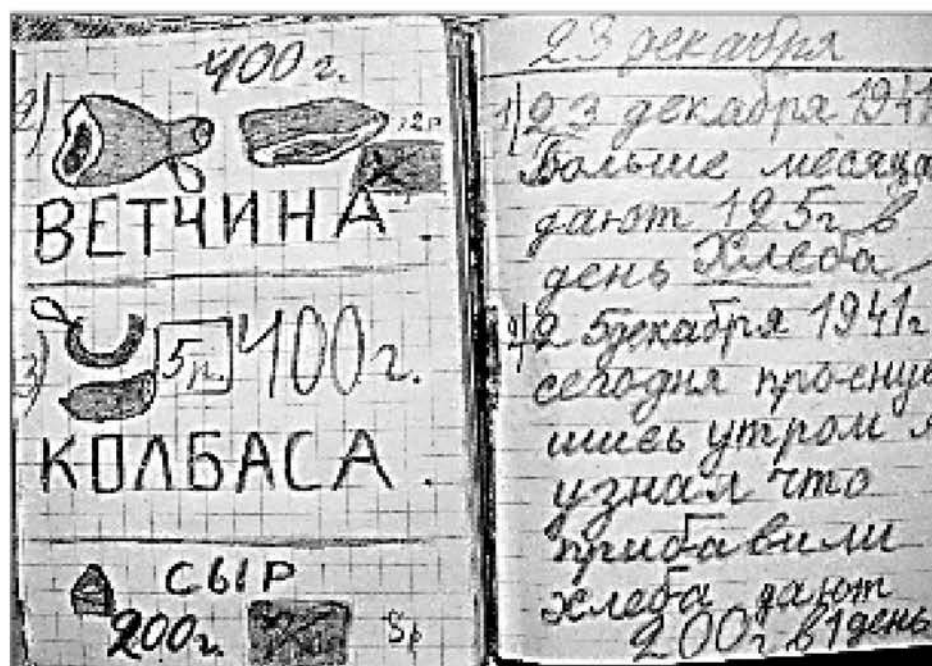 400 г.
2)
ВЕТЧИНА.
3)
5р. 400 г.
КОЛБАСА.
СЫР
200 г. 8р
23 декабря
1) 23 декабря 1941
Больше месяца
дают 125 г в
день хлеба
2) 25 декабря 1941 г
сегодня проснув
шись утром я
узнал что
прибавили
хлеба дают
200 г в 1 день